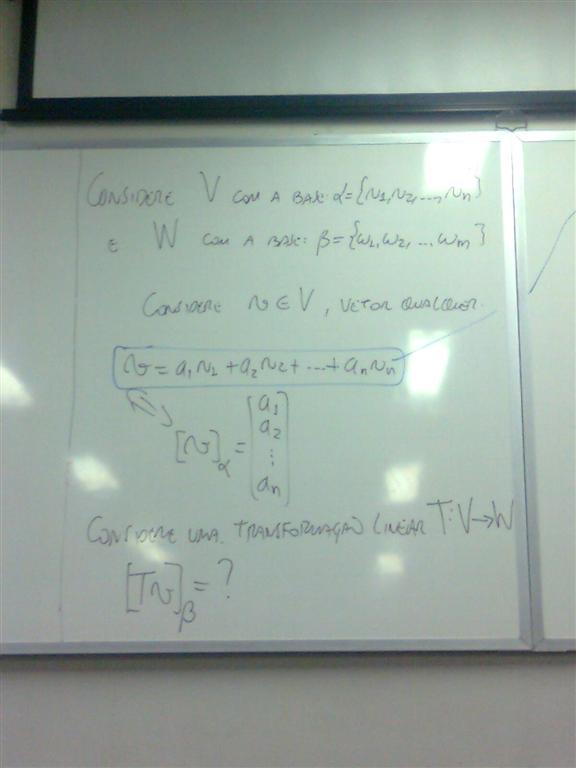 CONSIDERE V COM A BASE α={v1,v2,...,vn}
E W COM A BASE: β={w1,w2,...wm}
CONSIDERE v∈V, VETOR QUALQUER.
v=a1v1+a2v2+...+anvn
[v]α=[a1
a2
⋮
an]
CONSIDERE UMA TRANSFORMAÇÃO LINEAR T:V→W
[Tv]β=?